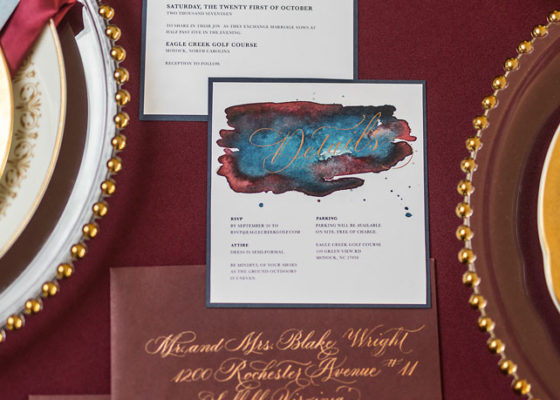 SATURDAY, THE TWENTY FIRST OF OCTOBER
TWO THOUSAND SEVENTEEN
TO SHARE IN THEIR JOY AS THEY EXCHANGE MARRIAGE VOWS AT
HALF PAST FIVE IN THE EVENING.
EAGLE CREEK GOLF COURSE
MOYOCK, NORTH CAROLINA
RECEPTION TO FOLLOW.
Details
RSVP
BY SEPTEMBER 20 TO
RSVP@EAGLECREEKGOLF.COM
ATTIRE
DRESS IS SEMI-FORMAL.
BE MINDFUL OF YOUR SHOES
AS THE GROUND OUTDOORS
IS UNEVEN.
PARKING
PARKING WILL BE AVAILABLE
ON SITE, FREE OF CHARGE.
EAGLE CREEK GOLF COURSE
109 GREEN VIEW RD
MOYOCK, NC 27958
Mr. and Mrs. Blake Wright
1200 Rochester Avenue #11
Virginia